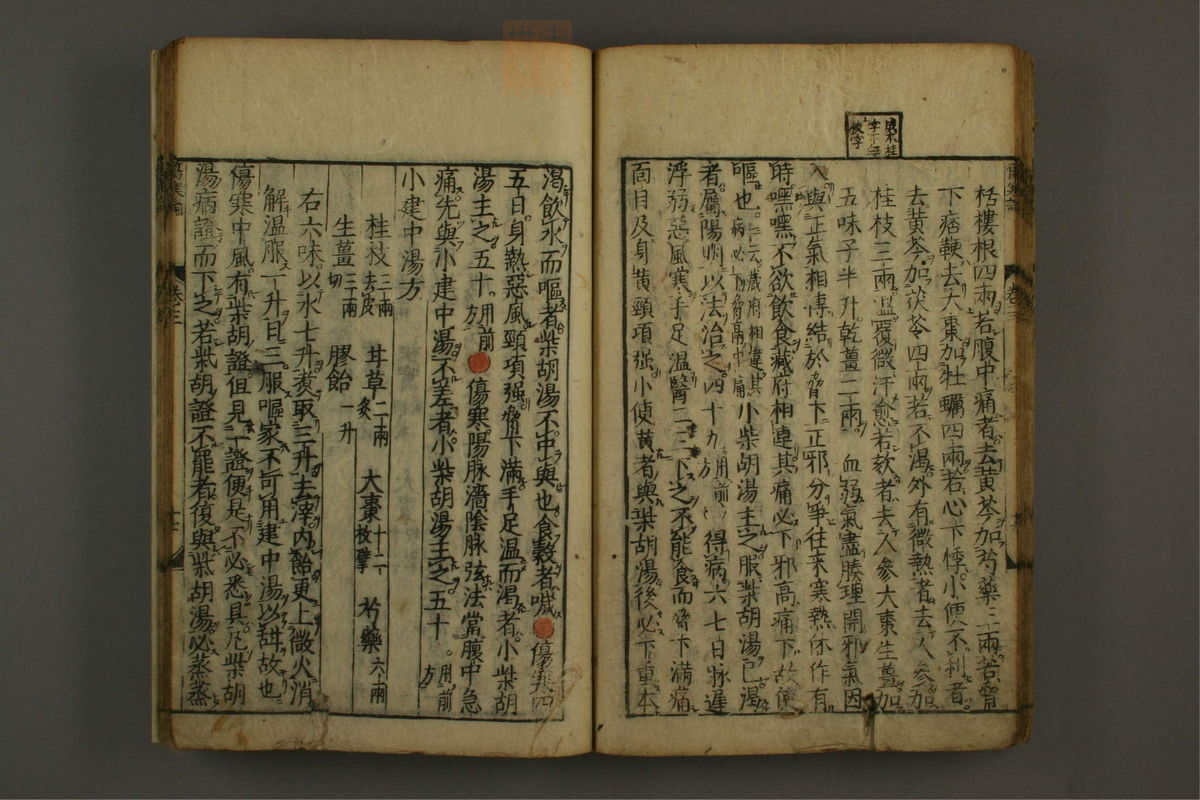 成本桂
字下無
枝字
栝樓根四兩若腹中痛者去黃芩加芍藥三兩若脅
下痞鞕去大棗加牡蠣四兩若心下悸小便不利者
去黃芩加茯苓四兩若不渴外有微熱者去人參加
桂枝三兩溫覆微汗愈若欬者去人參大棗生薑加
五味子半升乾薑二兩 血弱氣盡腠理開邪氣因
入與正氣相摶結於脅下正邪分爭往来寒熱休作有
時嘿嘿不欲飲食藏府相連其痛必下邪高痛下故使
嘔也一云藏府相違其病必下脅鬲中痛小柴胡湯主之服柴胡湯已渴
者屬陽明以法治之四十九用前方 得病六七日脉遲
浮弱惡風寒手足溫醫二三下之不能食而脅下滿痛
面目及身黄頸項强小便黄者與柴胡湯後必下重本
渴飲水而嘔者柴胡湯不中與也食穀者噦 傷寒四
五日身熱惡風頸項强脅下滿手足温而渴者小柴胡
湯主之五十用前方 傷寒陽脉濇陰脉弦法當腹中急
痛先與小建中湯不差者小柴胡湯主之五十一用前方
小建中湯方
桂枝三兩去皮 甘草二兩炙 大棗十二枚擘 芍藥六兩
生薑三兩切 膠飴一升
右六味以水七升煑取三升去滓内飴更上微火消
解温服一升日三服嘔家不可用建中湯以甜故也
傷寒中風有柴胡證但見一證便是不必悉具凡柴胡
湯病證而下之若柴胡證不罷者復與柴胡湯必蒸蒸
傷寒論
卷三